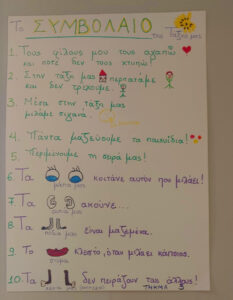 Το ΣΥΜΒΟΛΑΙΟ της Τάξης μας
1. Τους φίλους μου τους αγαπώ
και ποτέ δεν τους χτυπώ
2. Στην τάξη μας περπατάμε
και δεν τρέχουμε.
3. Μέσα στην τάξη μας
μιλάμε σιγανά.
4. Πάντα μαζεύουμε τα παιχνίδια!
5. Περιμένουμε τη σειρά μας!
6. Τα μάτια μας κοιτάνε αυτόν που μιλάει!
7. Τα αυτιά μας ακούνε...
8. Τα πόδια μας είναι μαζεμένα.
9. Το στόμα κλειστό, όταν μιλάει κάποιος.
10. Τα δεν πειράζουν τις άλλους!
ΤΜΗΜΑ 3